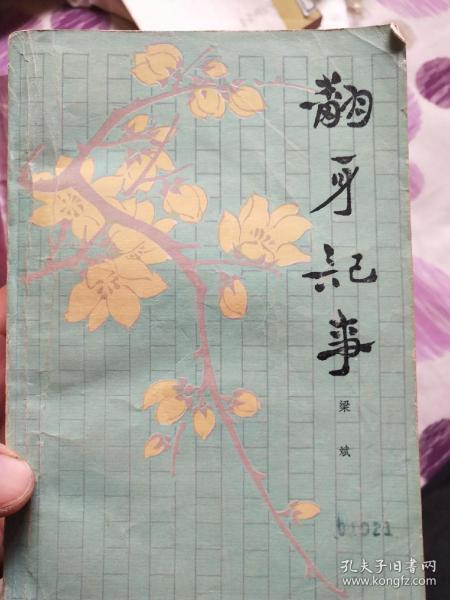 翻身记事
梁斌
01021
孔夫子旧书网
www.kongfz.com